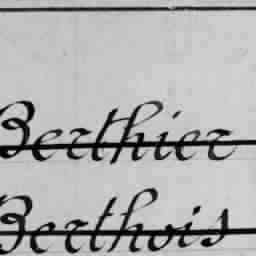 Berthier
Berthois